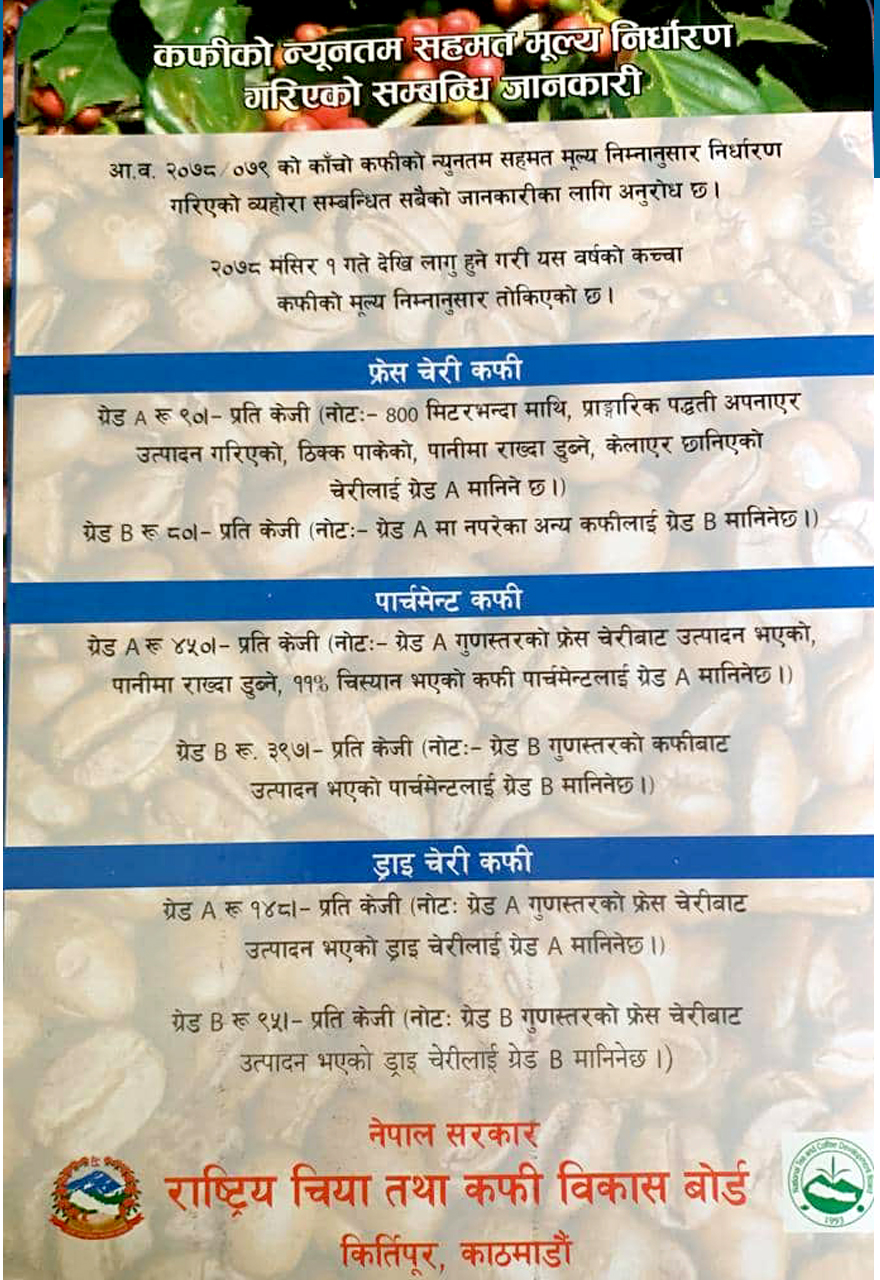 कफीको न्यूनतम सहमत मूल्य निर्धारण
गरिएको सम्बन्धि जानकारी
आ.व. २०७८/०७९ को काँचो कफीको न्युनतम सहमत मूल्य निम्नानुसार निर्धारण
गरिएको व्यहोरा सम्बन्धित सबैको जानकारीका लागि अनुरोध छ।
२०७८ मंसिर १ गते देखि लागु हुने गरी यस वर्षको कच्चा
कफीको मूल्य निम्नानुसार तोकिएको छ।
फ्रेस चेरी कफी
ग्रेड A रू ९०।- प्रति केजी (नोटः- 800 मिटरभन्दा माथि, प्राङ्गारिक पद्धती अपनाएर
उत्पादन गरिएको, ठिक्क पाकेको, पानीमा राख्दा डुब्ने, केलाएर छानिएको
चेरीलाई ग्रेड A मानिने छ।)
ग्रेड B रू ८०।- प्रति केजी (नोटः- ग्रेड A मा नपरेका अन्य कफीलाई ग्रेड B मानिनेछ।)
पार्चमेन्ट कफी
ग्रेड A रू ४५०।- प्रति केजी (नोटः- ग्रेड A गुणस्तरको फ्रेस चेरीबाट उत्पादन भएको,
पानीमा राख्दा डुब्ने, ११% चिस्यान भएको कफी पार्चमेन्टलाई ग्रेड A मानिनेछ।)
ग्रेड B रू. ३९७।- प्रति केजी (नोटः- ग्रेड B गुणस्तरको कफीबाट
उत्पादन भएको पार्चमेन्टलाई ग्रेड B मानिनेछ।)
ड्राइ चेरी कफी
ग्रेड A रू १४८।- प्रति केजी (नोटः ग्रेड A गुणस्तरको फ्रेस चेरीबाट
उत्पादन भएको ड्राइ चेरीलाई ग्रेड A मानिनेछ।)
ग्रेड B रू ९५।- प्रति केजी (नोटः ग्रेड B गुणस्तरको फ्रेस चेरीबाट
उत्पादन भएको ड्राइ चेरीलाई ग्रेड B मानिनेछ।)
नेपाल सरकार
राष्ट्रिय चिया तथा कफी विकास बोर्ड
किर्तिपूर, काठमाडौं
National Tea and Coffee Development Board
1993